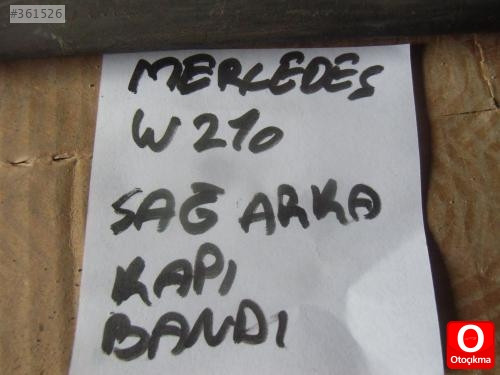 #361526
MERCEDES
W210
SAĞ ARKA
KAPI
BANDI
O
Otoçıkma